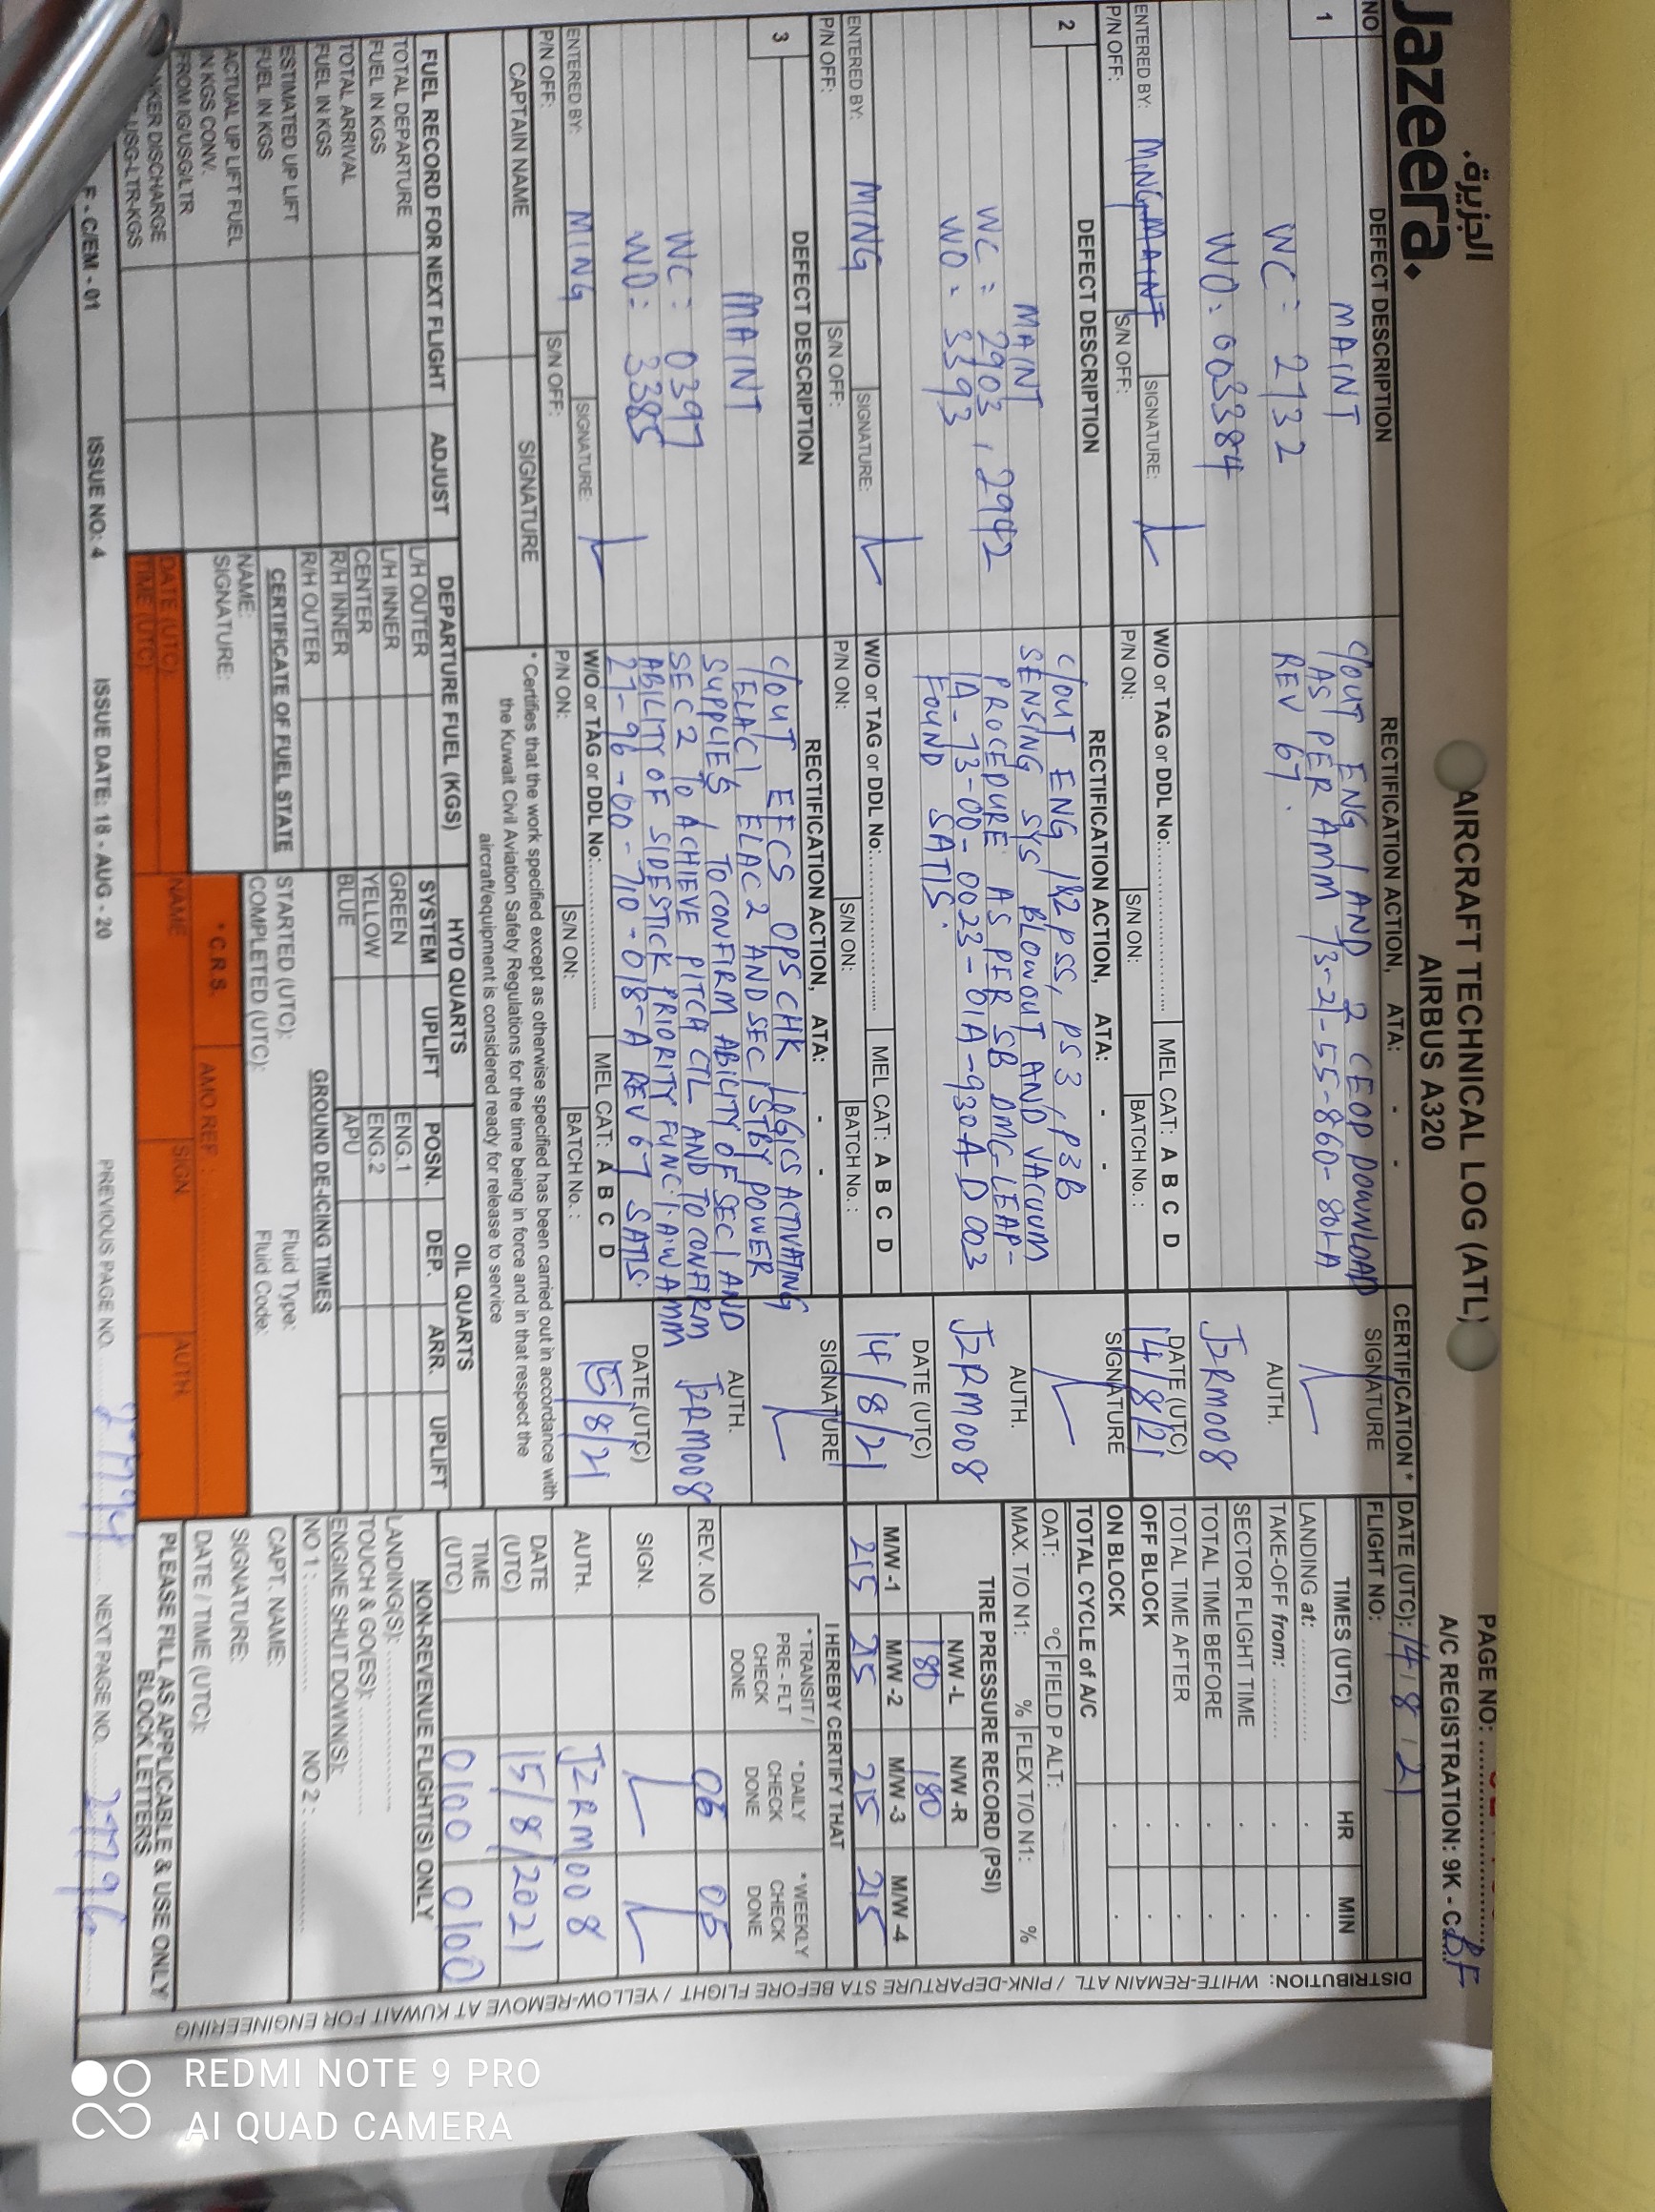 الجزيرة.
Jazeera.
AIRCRAFT TECHNICAL LOG (ATL)
AIRBUS A320
PAGE NO:
A/C REGISTRATION: 9K - C
NO
DEFECT DESCRIPTION
RECTIFICATION ACTION, ATA: - -
CERTIFICATION *
1
MAINT
WC: 2732
WO: 003384
C/OUT ENG 1 AND 2 CEOP DOWNLOAD
AS PER AMM 73-21-55-860-801-A
REV 67.
SIGNATURE
AUTH.
JZRM008
DATE (UTC)
14/8/21
ENTERED BY: MING MAINT
SIGNATURE:
W/O or TAG or DDL No:
MEL CAT: A B C D
P/N OFF:
S/N OFF:
P/N ON:
S/N ON:
BATCH No. :
2
DEFECT DESCRIPTION
RECTIFICATION ACTION, ATA: - -
SIGNATURE
MAINT
WC: 2903, 2942
WO: 3393
C/OUT ENG 1&2 PSS, PS3, P3B
SENSING SYS BLOWOUT AND VACUUM
PROCEDURE AS PER SB DMC-LEAP-
1A-73-00-0023-01A-930A-D 003
FOUND SATIS.
AUTH.
JZRM008
DATE (UTC)
14/8/21
ENTERED BY: MING
SIGNATURE:
W/O or TAG or DDL No:
MEL CAT: A B C D
P/N OFF:
S/N OFF:
P/N ON:
S/N ON:
BATCH No. :
3
DEFECT DESCRIPTION
RECTIFICATION ACTION, ATA: - -
SIGNATURE
MAINT
WC: 0397
WO: 3385
C/OUT EFCS OPS CHK LOGICS ACTIVATING
ELAC1, ELAC2 AND SEC1 STBY POWER
SUPPLIES, TO CONFIRM ABILITY OF SEC1 AND
SEC2 TO ACHIEVE PITCH CTL AND TO CONFIRM
ABILITY OF SIDESTICK PRIORITY FUNC. I.A.W AMM
27-96-00-710-018-A REV 67 SATIS.
AUTH.
JZRM008
DATE (UTC)
15/8/21
ENTERED BY: MING
SIGNATURE:
W/O or TAG or DDL No:
MEL CAT: A B C D
P/N OFF:
S/N OFF:
P/N ON:
S/N ON:
BATCH No. :
CAPTAIN NAME
SIGNATURE
* Certifies that the work specified except as otherwise specified has been carried out in accordance with
the Kuwait Civil Aviation Safety Regulations for the time being in force and in that respect the
aircraft/equipment is considered ready for release to service
FUEL RECORD FOR NEXT FLIGHT
ADJUST
TOTAL DEPARTURE
FUEL IN KGS
TOTAL ARRIVAL
FUEL IN KGS
ESTIMATED UP LIFT
FUEL IN KGS
ACTUAL UP LIFT FUEL
IN KGS CONV.
FROM IG/USG/LTR
DISCHARGE
USG-LTR-KGS
DEPARTURE FUEL (KGS)
L/H OUTER
L/H INNER
CENTER
R/H INNER
R/H OUTER
CERTIFICATE OF FUEL STATE
NAME:
SIGNATURE:
DATE (UTC):
TIME (UTC):
HYD QUARTS
SYSTEM UPLIFT
GREEN
YELLOW
BLUE
OIL QUARTS
POSN. DEP. ARR. UPLIFT
ENG.1
ENG.2
APU
GROUND DE-ICING TIMES
STARTED (UTC): Fluid Type:
COMPLETED (UTC): Fluid Code:
* C.R.S. AMO REF :
NAME SIGN. AUTH.
DATE (UTC): 14 8 21
FLIGHT NO:
TIMES (UTC) HR MIN
LANDING at:
TAKE-OFF from:
SECTOR FLIGHT TIME
TOTAL TIME BEFORE
TOTAL TIME AFTER
OFF BLOCK
ON BLOCK
TOTAL CYCLE of A/C
OAT: °C FIELD P ALT:
MAX. T/O N1: % FLEX T/O N1: %
TIRE PRESSURE RECORD (PSI)
N/W -L N/W -R
180 180
M/W -1 M/W -2 M/W -3 M/W -4
215 215 215 215
I HEREBY CERTIFY THAT
* TRANSIT / PRE - FLT CHECK DONE
* DAILY CHECK DONE
* WEEKLY CHECK DONE
REV. NO 06 06
SIGN.
AUTH. JZRM008
DATE (UTC) 15/8/2021
TIME (UTC) 0100 0100
NON-REVENUE FLIGHT(S) ONLY
LANDING(S):
TOUCH & GO(ES):
ENGINE SHUT DOWN(S):
NO 1 : NO 2 :
CAPT. NAME:
SIGNATURE:
DATE / TIME (UTC):
PLEASE FILL AS APPLICABLE & USE ONLY
BLOCK LETTERS
DISTRIBUTION: WHITE-REMAIN ATL / PINK-DEPARTURE STA BEFORE FLIGHT / YELLOW-REMOVE AT KUWAIT FOR ENGINEERING
F - C/EM - 01
ISSUE NO: 4
ISSUE DATE: 18 - AUG - 20
PREVIOUS PAGE NO.
NEXT PAGE NO. 27796
REDMI NOTE 9 PRO
AI QUAD CAMERA